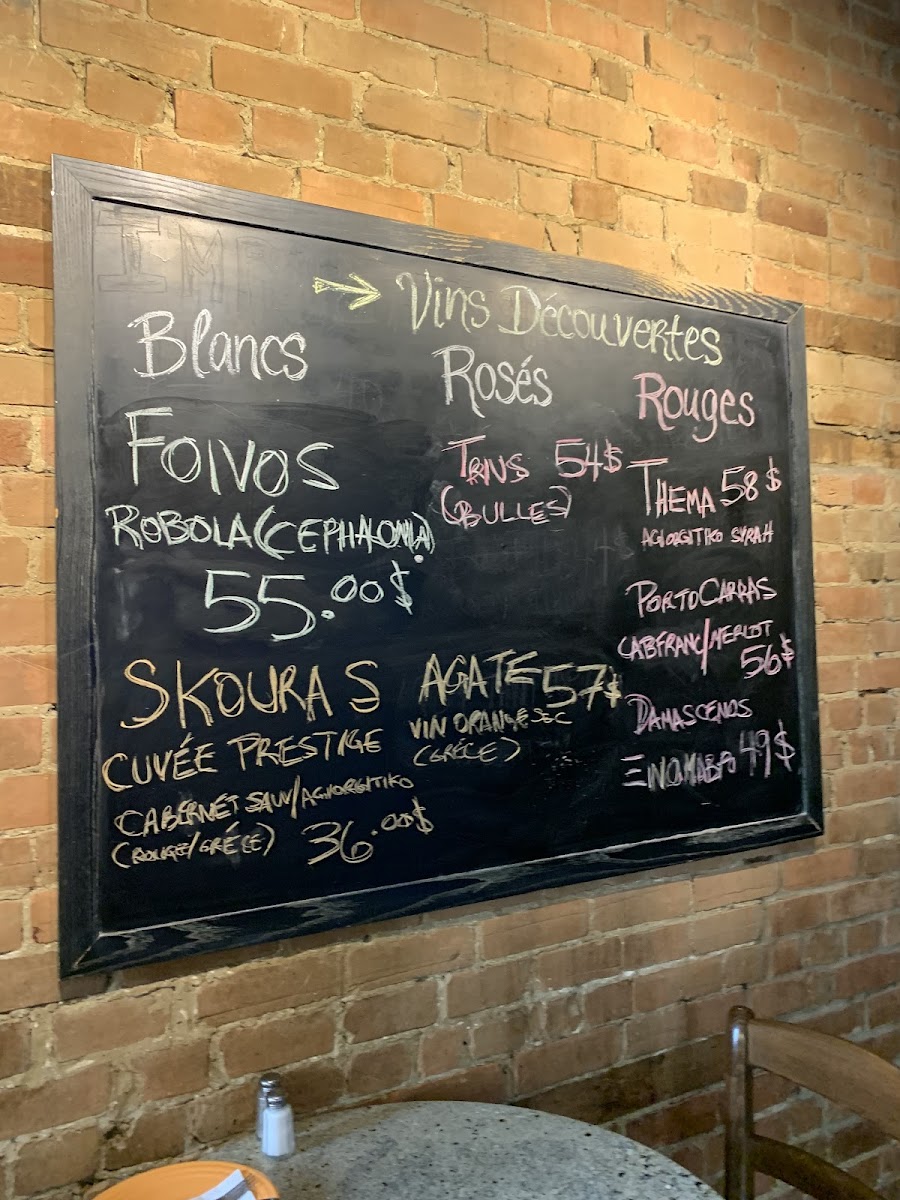 Vins Découvertes
Blancs
FOIVOS
ROBOLA (CEPHALONIA)
55.00$
SKOURAS
CUVÉE PRESTIGE
CABERNET SAUV/AGIORGITIKO
(ROUGE/GRÉCE)
36.00$
Rosés
54$
(BULLES)
AGATE 57$
VIN ORANGE SEC
(GRÉCE)
Rouges
THEMA 58$
AGIORGITIKO SYRAH
PORTO CARRAS
CAB FRANC/MERLOT
56$
DAMASCENOS
49$